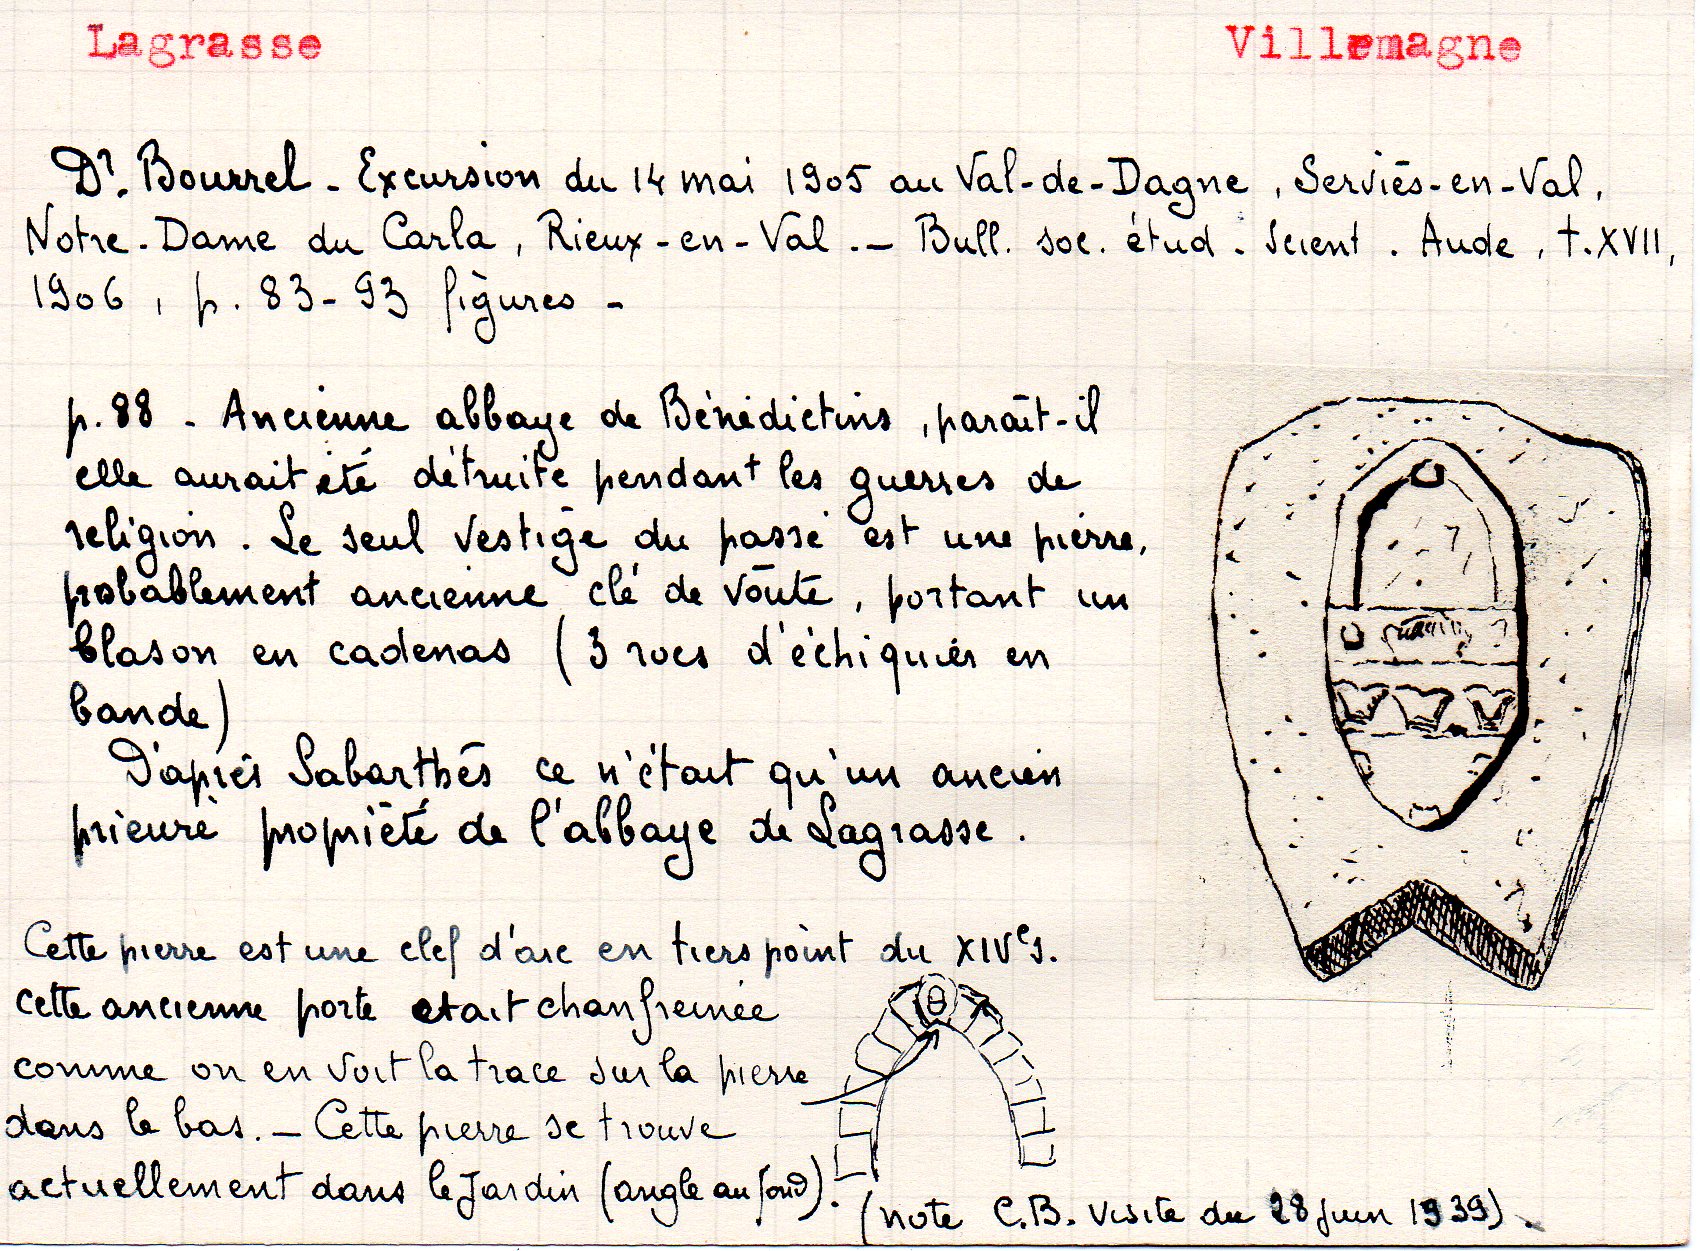 Lagrasse Villemagne
Dr. Bourrel - Excursion du 14 mai 1905 au Val-de-Dagne, Serviès-en-Val,
Notre-Dame du Carla, Rieux-en-Val. - Bull. soc. étud. scient. Aude, t. XVII,
1906, p. 83-93 figures -
p. 88 - Ancienne abbaye de Bénédictins, paraît-il
elle aurait été détruite pendant les guerres de
religion. Le seul vestige du passé est une pierre,
probablement ancienne clé de voûte, portant un
blason en cadenas (3 rocs d'échiquier en
bande)
D'après Sabarthès ce n'était qu'un ancien
prieuré propriété de l'abbaye de Lagrasse.
Cette pierre est une clef d'arc en tiers point du XIVe s.
cette ancienne porte etait chanfreinée
comme on en voit la trace sur la pierre
dans le bas. - Cette pierre se trouve
actuellement dans le Jardin (angle au fond).
(note C.B. visite du 28 juin 1939).